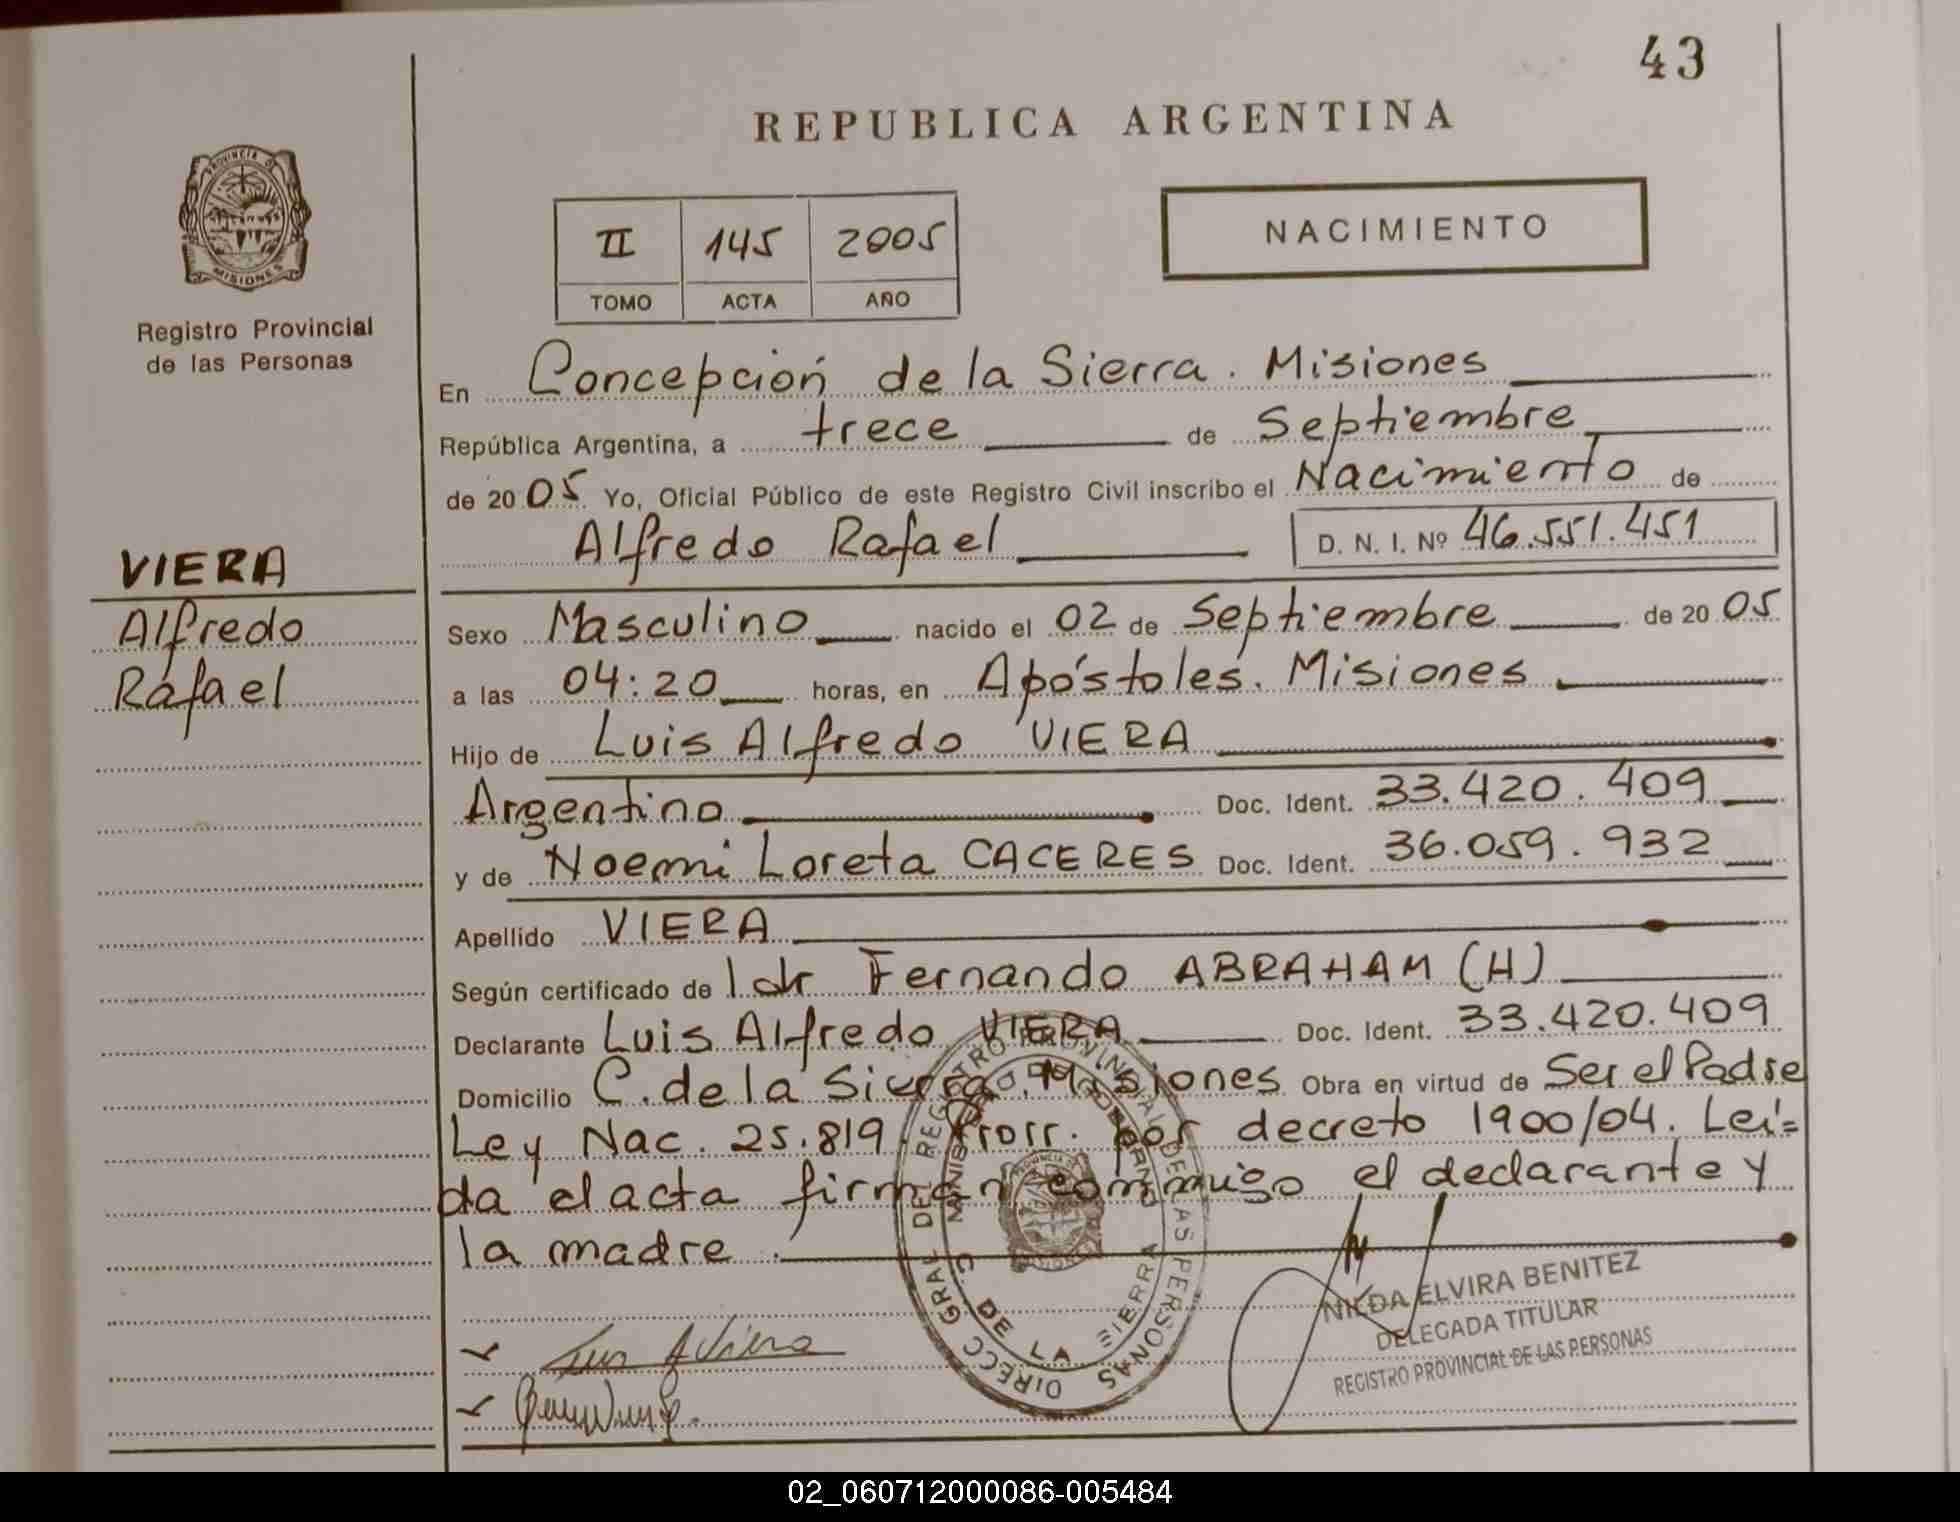 43
REPUBLICA ARGENTINA
PROVINCIA DE
MISIONES
Registro Provincial
de las Personas
II 145 2005
TOMO ACTA AÑO
NACIMIENTO
En Concepción de la Sierra. Misiones
República Argentina, a trece de Septiembre
de 2005 Yo, Oficial Público de este Registro Civil inscribo el Nacimiento de
Alfredo Rafael D. N. I. Nº 46.551.451
VIERA
Alfredo
Rafael
Sexo Masculino nacido el 02 de Septiembre de 2005
a las 04:20 horas, en Apóstoles. Misiones
Hijo de Luis Alfredo VIERA
Argentino Doc. Ident. 33.420.409
y de Noemi Loreta CACERES Doc. Ident. 36.059.932
Apellido VIERA
Según certificado de l dr Fernando ABRAHAM (H)
Declarante Luis Alfredo VIERA Doc. Ident. 33.420.409
Domicilio C. de la Sierra. Misiones Obra en virtud de Ser el Padre
Ley Nac. 25.819. Prorr. por decreto 1900/04. Leí=
da el acta firman conmigo el declarante y
la madre.
DIRECC GRAL DEL REGISTRO PROVINCIAL DE LAS PERSONAS
MINISTERIO DE GOBIERNO
C. DE LA SIERRA
NILDA ELVIRA BENITEZ
DELEGADA TITULAR
REGISTRO PROVINCIAL DE LAS PERSONAS
Luis A Viera
02_060712000086-005484